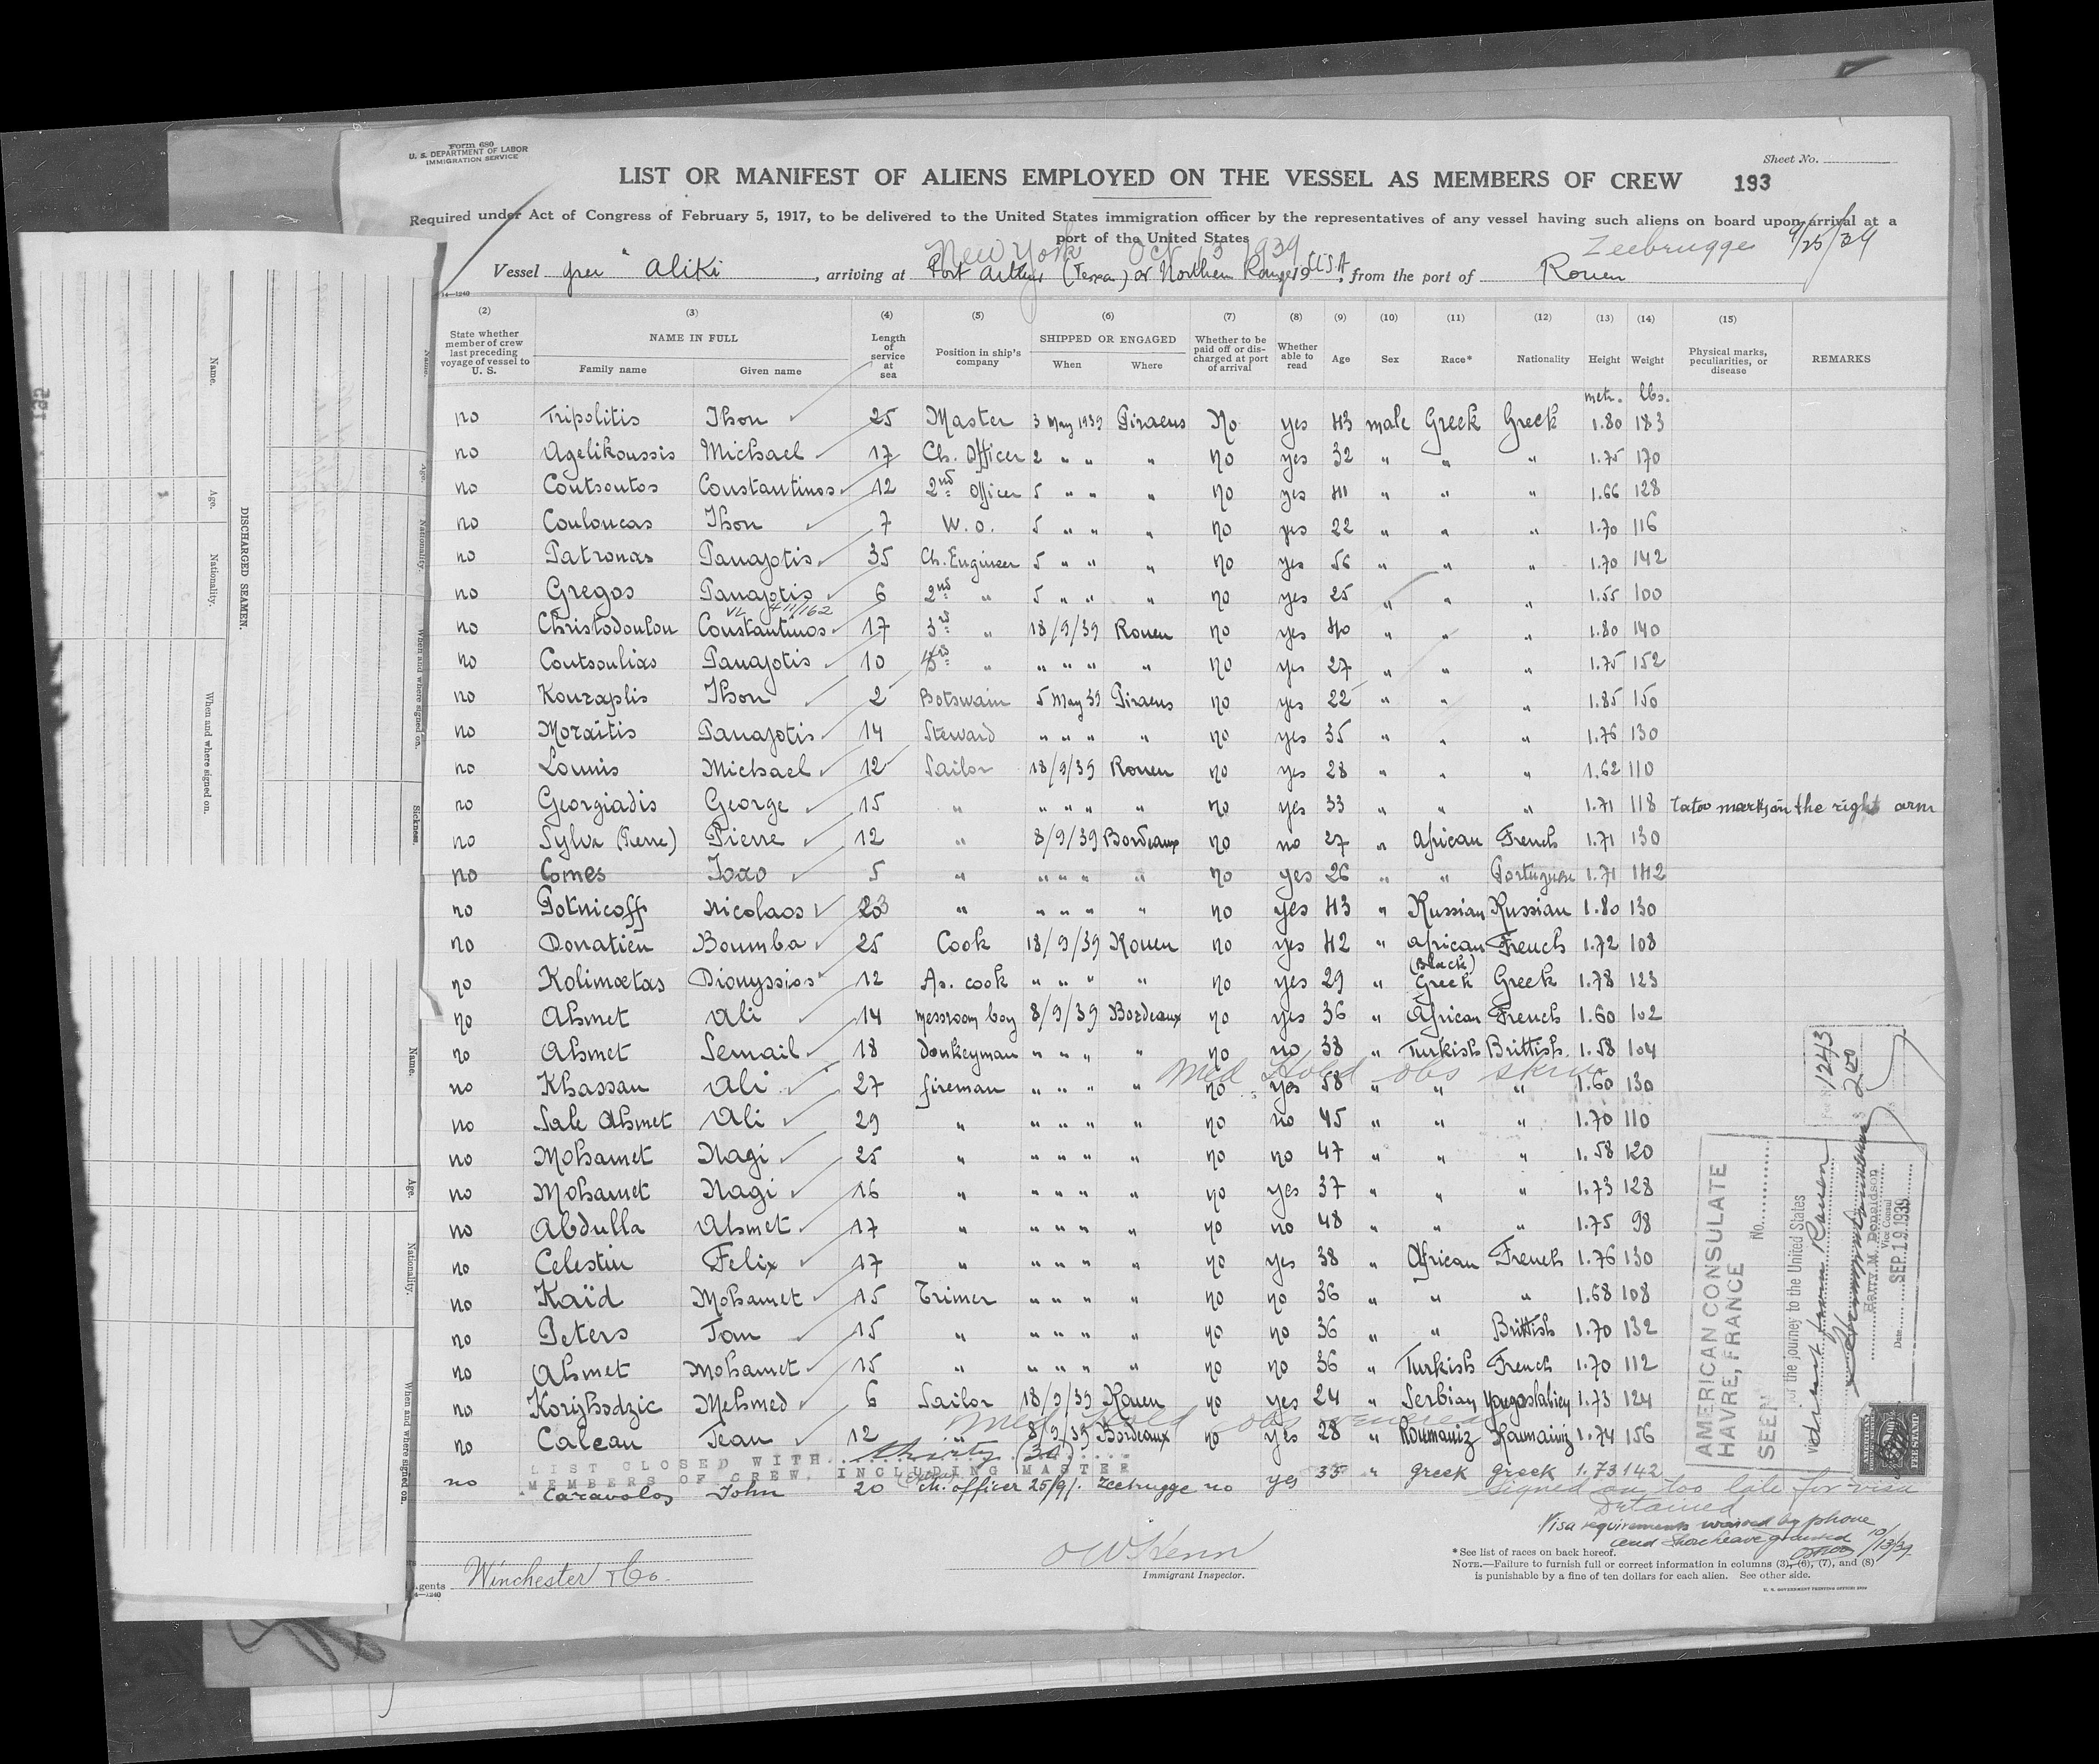 Form 680
U. S. DEPARTMENT OF LABOR
IMMIGRATION SERVICE
Sheet No.
LIST OR MANIFEST OF ALIENS EMPLOYED ON THE VESSEL AS MEMBERS OF CREW 193
Required under Act of Congress of February 5, 1917, to be delivered to the United States immigration officer by the representatives of any vessel having such aliens on board upon arrival at a
port of the United States
New York Oct 13 1939 Zeebrugge 9/25/39
Vessel gree "Aliki , arriving at Port Arthur (Texas) or Northern Range 19 U S A , from the port of Rouen
14—1240
(2) (3) (4) (5) (6) (7) (8) (9) (10) (11) (12) (13) (14) (15)
State whether member of crew last preceding voyage of vessel to U. S. NAME IN FULL Family name Given name Length of service at sea Position in ship's company SHIPPED OR ENGAGED When Where Whether to be paid off or discharged at port of arrival Whether able to read Age Sex Race* Nationality Height Weight Physical marks, peculiarities, or disease REMARKS
metr. lbs.
no Tripolitis Jhon 25 Master 3 May 1939 Piraeus No yes 43 male Greek Greek 1.80 183
no Agelikoussis Michael 17 Ch. Officer 2 " " " no yes 32 " " " 1.75 170
no Coutsoutos Constantinos 12 2nd Officer 5 " " " no yes 41 " " " 1.66 128
no Couloucas Jhon 7 W. O. 5 " " " no yes 22 " " " 1.70 116
no Patronas Panajotis 35 Ch. Engineer 5 " " " no yes 56 " " " 1.70 142
no Gregos Panajotis 6 2nd " 5 " " " no yes 25 " " " 1.55 100
no Christodoulou Constantinos 17 3rd " 18/9/39 Rouen no yes 40 " " " 1.80 140
no Coutsoulias Panajotis 10 " " " " " no yes 27 " " " 1.75 152
no Kouraplis Jhon 2 Botswain 5 May 39 Piraeus no yes 22 " " " 1.85 150
no Moraitis Panajotis 14 Steward " " " " no yes 35 " " " 1.76 130
no Lounis Michael 12 Sailor 18/9/39 Rouen no yes 28 " " " 1.62 110
no Georgiadis George 15 " " " " " no yes 33 " " " 1.71 118 tatoo marks on the right arm
no Sylva (Pierre) Pierre 12 " 8/9/39 Bordeaux no no 27 " African French 1.71 130
no Comes Joao 5 " " " " " no yes 26 " " Portuguese 1.71 142
no Potnicoff Nicolaos 23 " " " " " no yes 43 " Russian Russian 1.80 130
no Donatien Boumba 25 Cook 18/9/39 Rouen no yes 42 " African French 1.72 108
(Black)
no Kolimatas Dionyssios 12 As. cook " " " " no yes 29 " Greek Greek 1.78 123
no Ahmet Ali 14 messroom boy 8/9/39 Bordeaux no yes 36 " African French 1.60 102
no Ahmet Semail 18 Donkeyman " " " " no no 38 " Turkish Brittish 1.58 104
Med Hold obs skin
no Khassan Ali 27 fireman " " " " no yes 58 " " " 1.60 130
no Sale Ahmet Ali 29 " " " " " no no 45 " " " 1.70 110
no Mohamet Nagi 25 " " " " " no no 47 " " " 1.58 120
no Mohamet Nagi 16 " " " " " no yes 37 " " " 1.73 128
no Abdulla Ahmet 17 " " " " " no no 48 " " " 1.75 98
no Celestin Felix 17 " " " " " no yes 38 " African French 1.76 130
no Kaïd Mohamet 15 Trimer " " " " no no 36 " " " 1.68 108
no Peters Tom 15 " " " " " no no 36 " " Brittish 1.70 132
no Ahmet Mohamet 15 " " " " " no no 36 " Turkish French 1.70 112
no Korijhodzic Mehmed 6 Sailor 18/9/39 Rouen no yes 24 " Serbian 1.73 124
Med Hold obs venereal
no Calcan Jean 12 " 8/9/39 Bordeaux no yes 28 " 1.74 156
LIST CLOSED WITH thirty (30)
MEMBERS OF CREW, INCLUDING MASTER
no Caravolos John 20 (extra) ch. officer 25/9/. Zeebrugge no yes 35 " greek greek 1.73 142
signed on too late for visa
Detained
Visa requirements waived by phone
and shore leave granted 10/13/39
Agents Winchester & Co.
Immigrant Inspector.
* See list of races on back hereof.
NOTE.—Failure to furnish full or correct information in columns (3), (6), (7), and (8)
is punishable by a fine of ten dollars for each alien. See other side.
U. S. GOVERNMENT PRINTING OFFICE
1243
200
AMERICAN CONSULATE
HAVRE, FRANCE
No.
SEEN
for the journey to the United States
Harry M. Donaldson
Vice Consul
Date SEP 19 1939
AMERICAN
FEE STAMP
DISCHARGED SEAMEN.
Name. Age. Nationality. When and where signed on.
Name. Age. Nationality. When and where signed on. Sickness.
Name. Age. Nationality. When and where signed on.